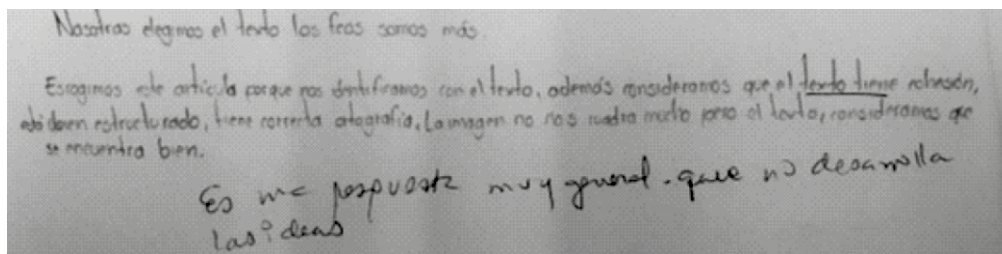 Nosotras elegimos el texto las feas somos más.
Escogimos este artículo porque nos identificamos con el texto, además consideramos que el texto tiene cohesión,
está bien estructurado, tiene correcta ortografía, La imagen no nos cuadra mucho pero el texto, consideramos que
se encuentra bien.
Es una respuesta muy general. que no desarrolla
las ideas